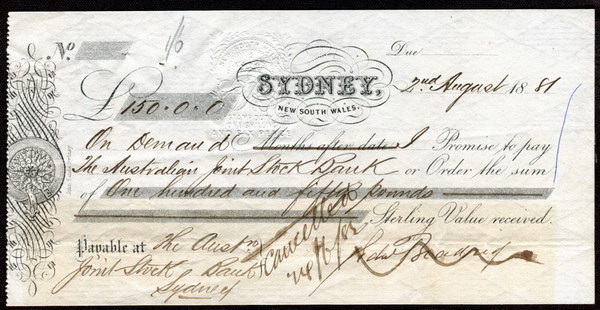 No. 1/6 Due
SYDNEY, 2nd August 1881
£150.0.0 NEW SOUTH WALES.
On Demand Months after date I Promise to pay
The Australian Joint Stock Bank or Order the sum
of One hundred and fifty pounds
Sterling Value received.
Payable at The Austn
Joint Stock Bank
Sydney
Cancelled